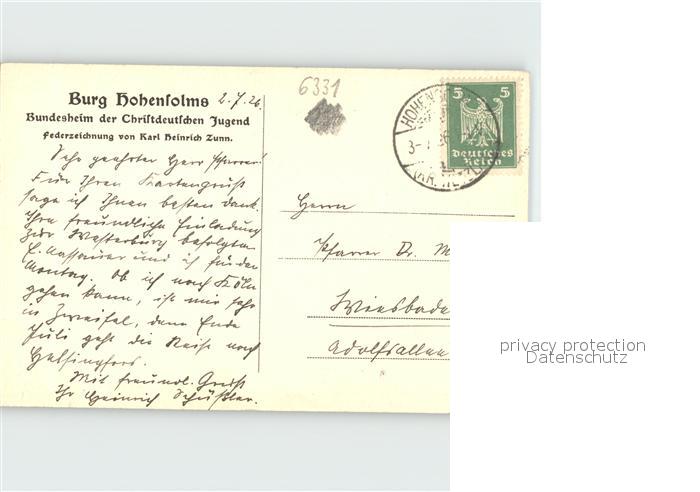 6331
Burg Hohensolms 2.7.26.
Bundesheim der Christdeutschen Jugend
Federzeichnung von Karl Heinrich Zunn.
Sehr geehrter Herr Pfarrer!
Für Ihren Kartengruß
sage ich Ihnen besten Dank.
Ihre freundliche Einladung
zur Westerburg befolgten
E. Nassauer und ich für den
Montag. Ob ich nach Köln
gehen kann, ist mir sehr
in Zweifel, denn Ende
Juli geht die Reise nach
Helsingfors.
Mit freundl. Gruß
Ihr Heinrich Schüßler.
HOHENS
3-7 26
5 5
Deutsches
Reich
Herrn
Pfarrer Dr. M
Wiesbade
Adolfsallee
privacy protection
Datenschutz